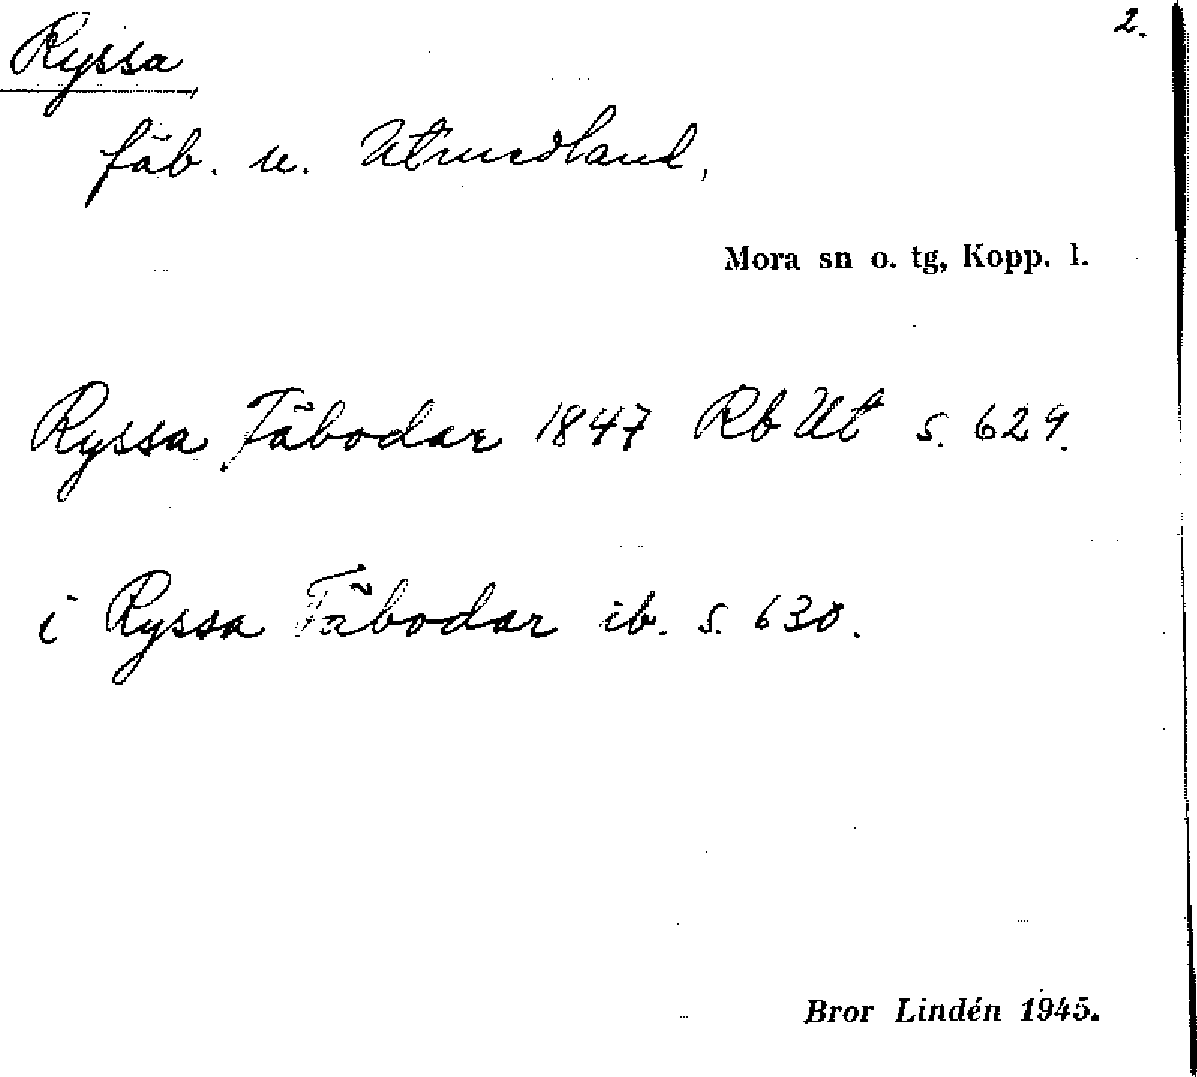 2.
Ryssa
fäb. u. Utmedland,
Mora sn o. tg, Kopp. l.
Ryssa Fäbodar 1847 Rb Ut s. 629.
i Ryssa Fäbodar ib. s. 630.
Bror Lindén 1945.